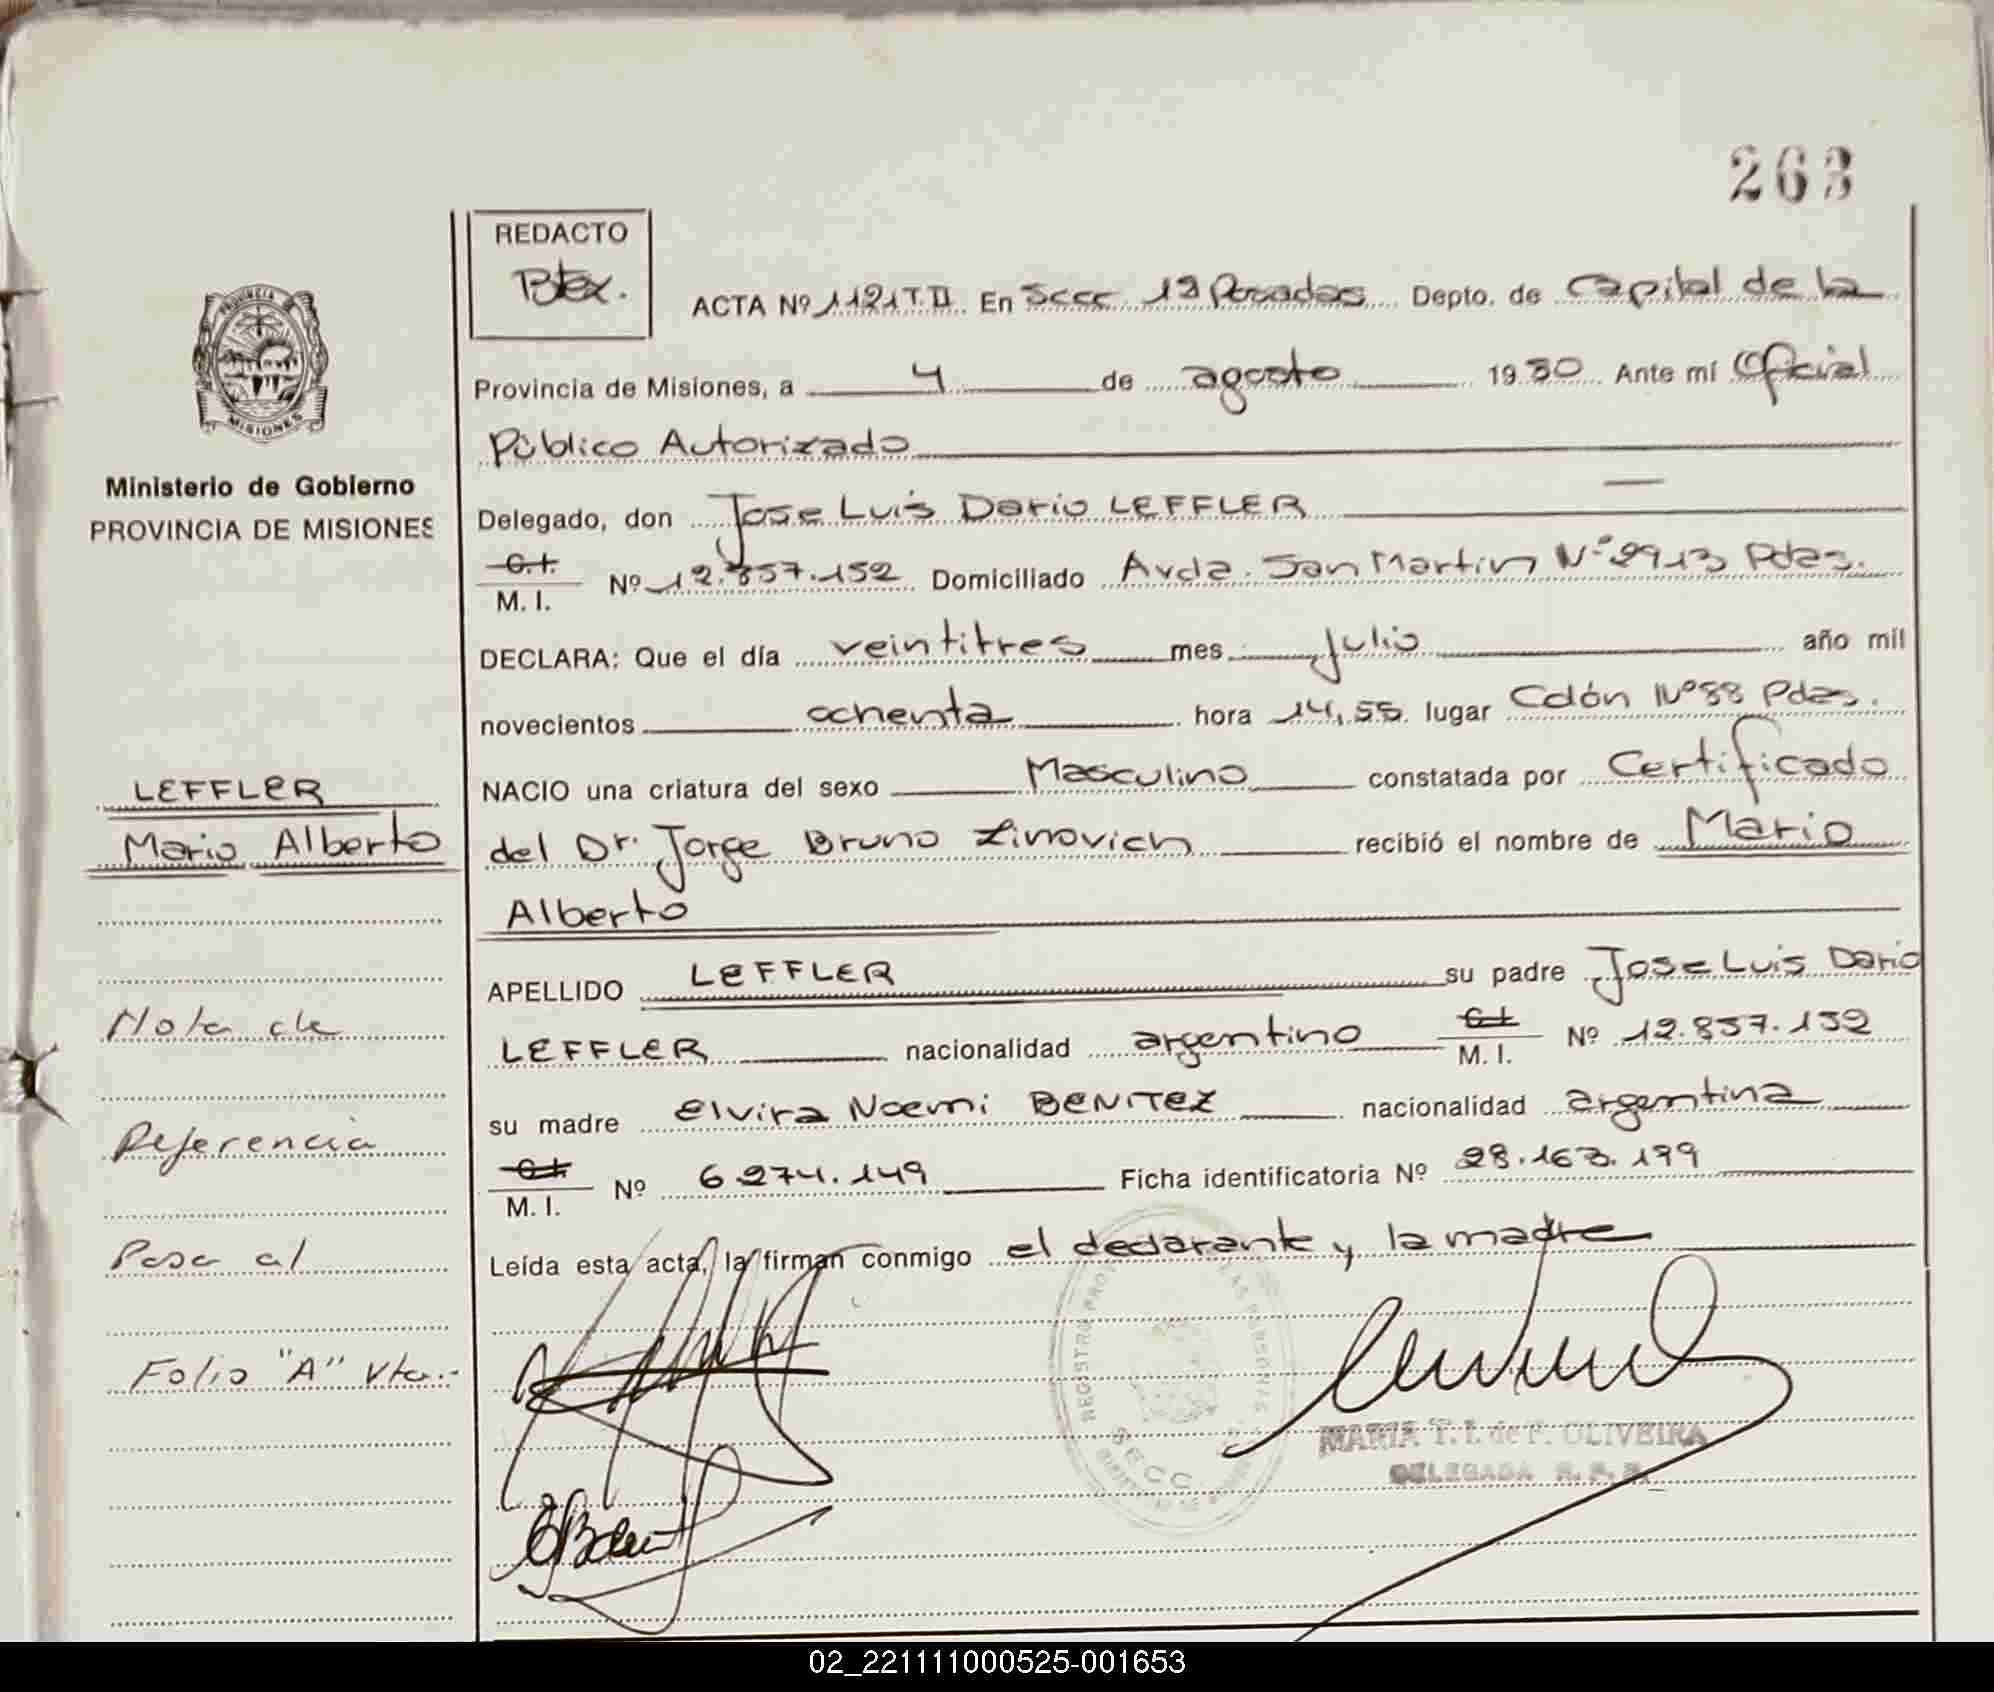 263
REDACTO
Btex.
ACTA Nº 1121 T.II En Secc 1ª Posadas Depto. de Capital de la
Provincia de Misiones, a 4 de agosto 1980 Ante mí Oficial
Público Autorizado
Delegado, don Jose Luis Dario LEFFLER
C.I.
M. I. Nº 12.857.152 Domiciliado Avda. San Martin Nº 2913 Pdas.
DECLARA: Que el día veintitres mes julio año mil
novecientos ochenta hora 14,55 lugar Colón Nº 88 Pdas.
NACIO una criatura del sexo Masculino constatada por Certificado
del Dr. Jorge Bruno Zinovich recibió el nombre de Mario
Alberto
APELLIDO LEFFLER su padre Jose Luis Dario
LEFFLER nacionalidad argentino C.I. M. I. Nº 12.857.152
su madre Elvira Noemi BENITEZ nacionalidad argentina
C.I.
M. I. Nº 6.274.149 Ficha identificatoria Nº 28.163.199
Leída esta acta, la firman conmigo el declarante y la madre
PROVINCIA
MISIONES
Ministerio de Gobierno
PROVINCIA DE MISIONES
LEFFLER
Mario Alberto
Nota de
Referencia
Pasa al
Folio "A" Vta.-
REGISTRO PROV
SECC
MARIA T. I. de F. OLIVEIRA
DELEGADA R. P. P.
02_221111000525-001653